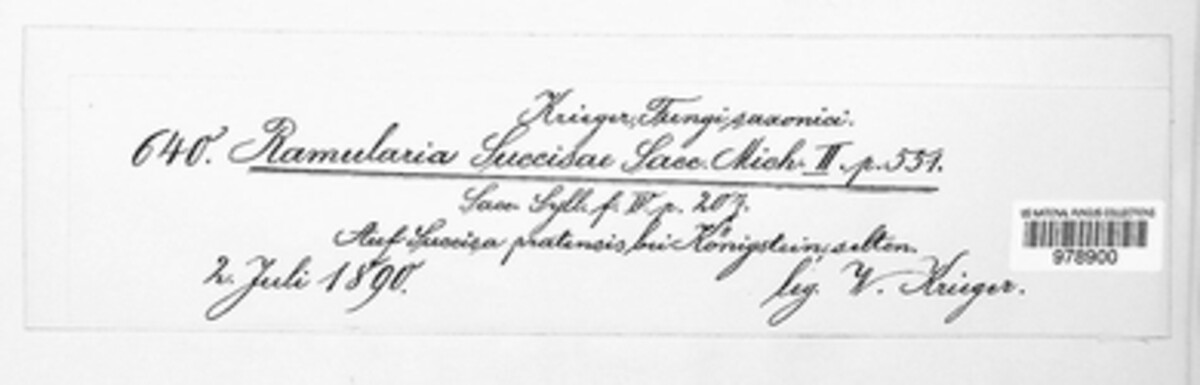 Krieger, Fungi saxonici.
640. Ramularia Succisae Sacc. Mich. II. p. 551.
Sacc. Syll. f. IV p. 207.
Auf Succisa pratensis bei Königstein, selten.
2. Juli 1890. leg. W. Krieger.
US NATIONAL FUNGUS COLLECTIONS
978900